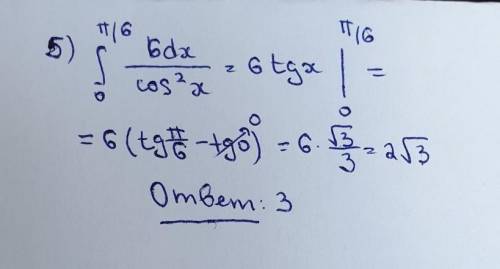 5) ∫₀^{π/6} 6dx/cos²x = 6 tgx |₀^{π/6} =
= 6 (tg π/6 − tg0⁰) = 6 · √3/3 = 2√3
Ответ: 3